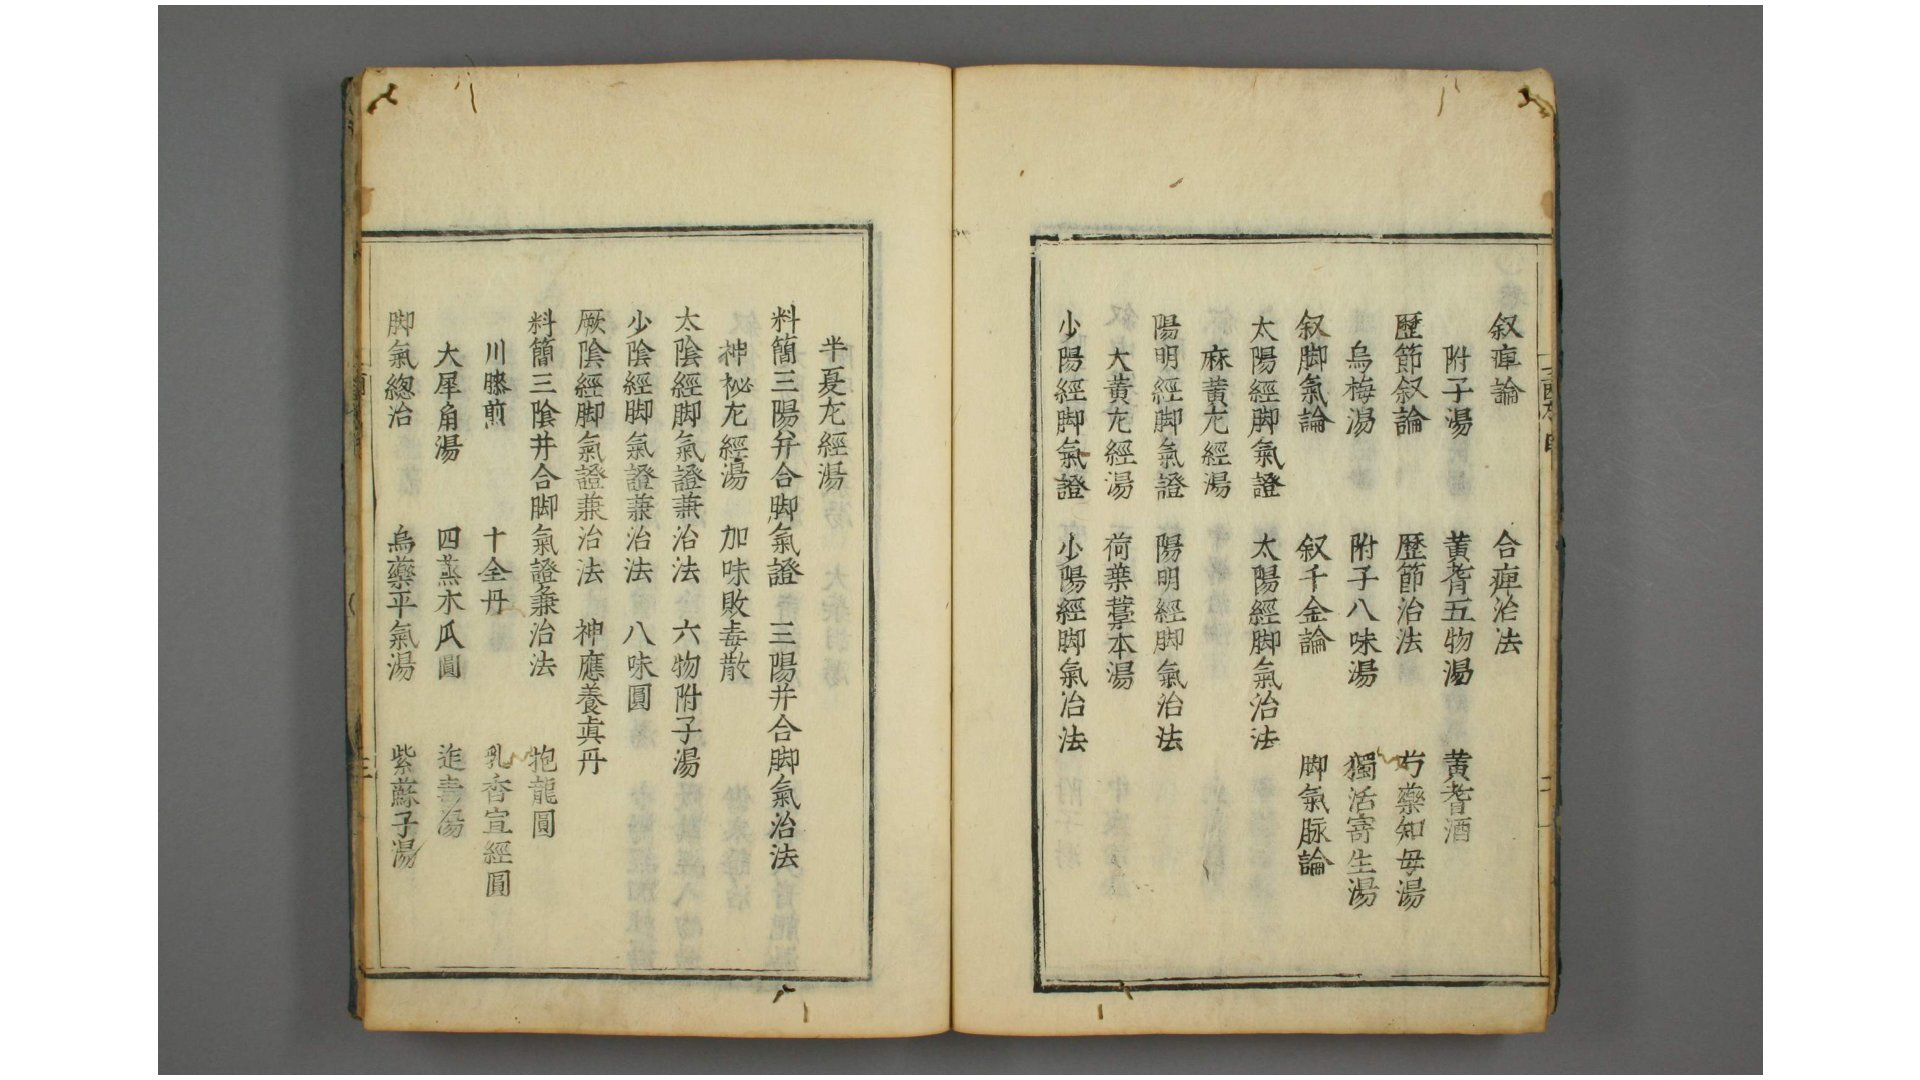 叙痺論 合痺治法
附子湯 黄耆五物湯 黄耆酒
歷節叙論 歷節治法 芍藥知母湯
烏梅湯 附子八味湯 獨活寄生湯
叙脚氣論 叙千金論 脚氣脉論
太陽經脚氣證 太陽經脚氣治法
麻黄左經湯
陽明經脚氣證 陽明經脚氣治法
大黄左經湯 荷葉藁本湯
少陽經脚氣證 少陽經脚氣治法
半夏左經湯
料簡三陽并合脚氣證 三陽并合脚氣治法
神祕左經湯 加味敗毒散
太陰經脚氣證兼治法 六物附子湯
少陰經脚氣證兼治法 八味圓
厥陰經脚氣證兼治法 神應養真丹
料簡三陰并合脚氣證兼治法 抱龍圓
川膝煎 十全丹 乳香宣經圓
大犀角湯 四蒸木瓜圓 追毒湯
脚氣總治 烏藥平氣湯 紫蘇子湯